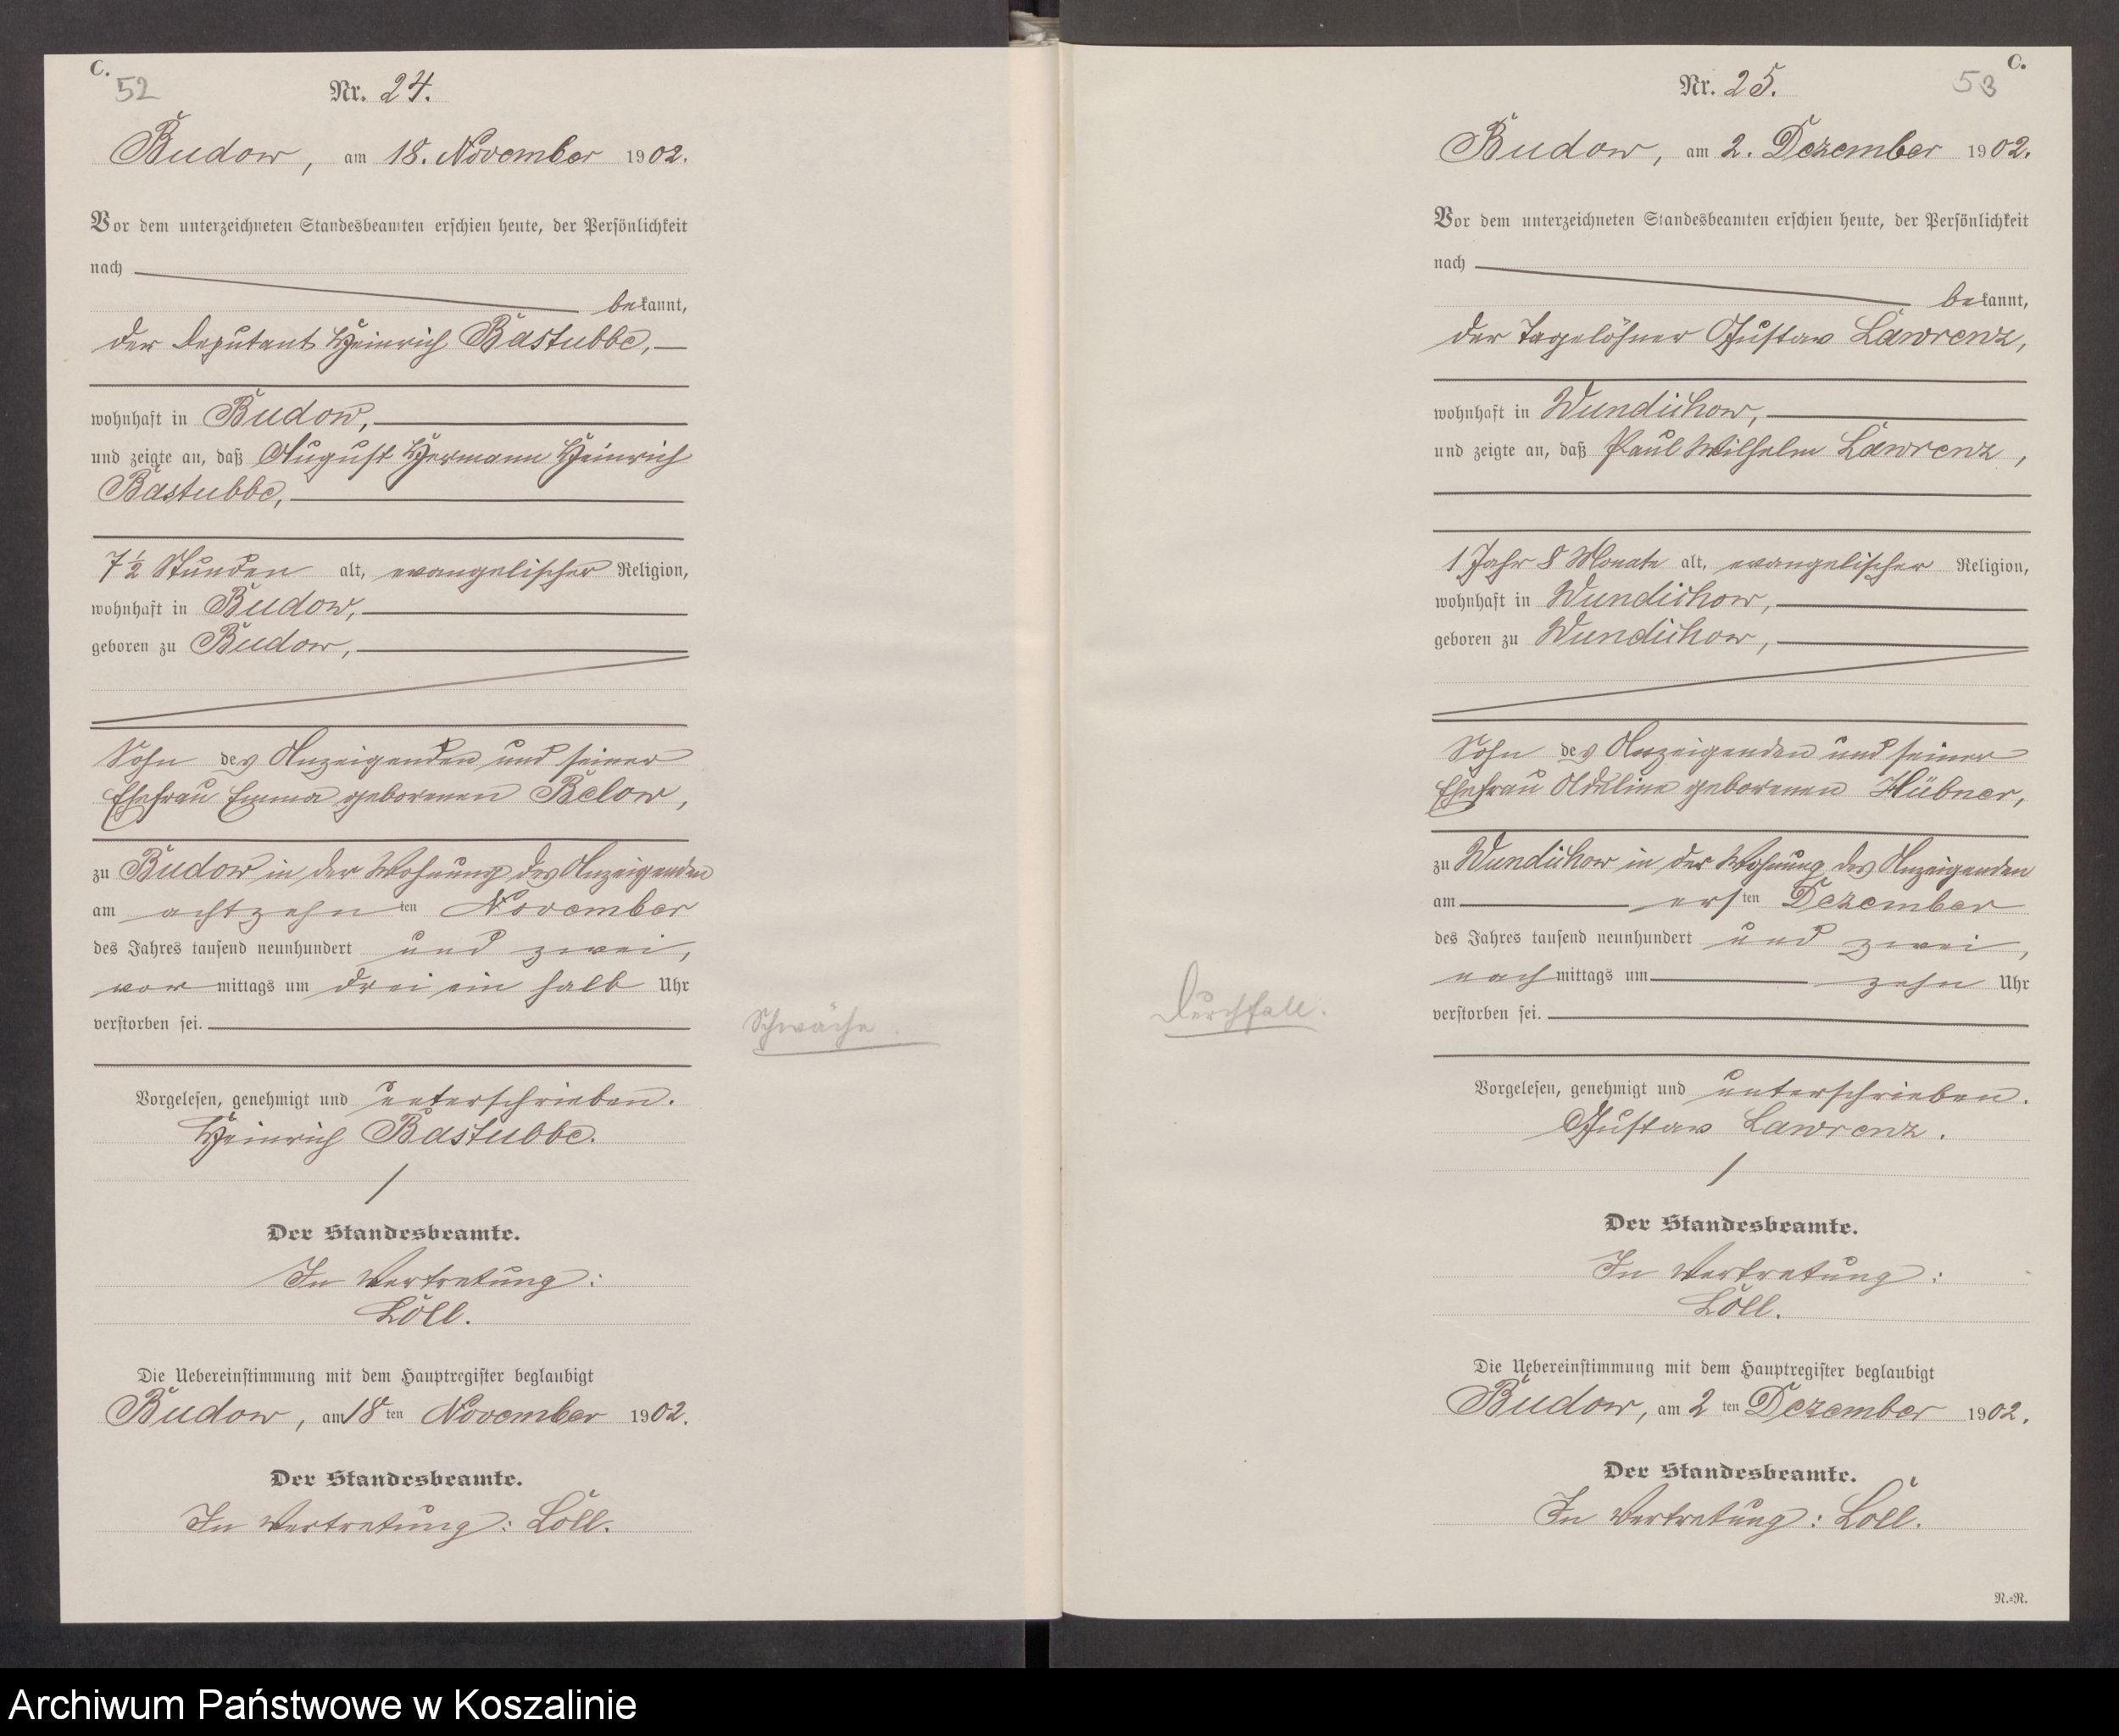 C.
52
Nr. 24.
Budow, am 18. November 1902.
Vor dem unterzeichneten Standesbeamten erschien heute, der Persönlichkeit
nach
bekannt,
der Deputant Heinrich Bastubbe,
wohnhaft in Budow,
und zeigte an, daß August Hermann Heinrich
Bastubbe,
7½ Stunden alt, evangelischer Religion,
wohnhaft in Budow,
geboren zu Budow,
Sohn des Anzeigenden und seiner
Ehefrau Emma geborenen Below,
zu Budow in der Wohnung des Anzeigenden
am achtzehnten November
des Jahres tausend neunhundert und zwei,
vormittags um drei ein halb Uhr
verstorben sei.
Schwäche.
Vorgelesen, genehmigt und unterschrieben.
Heinrich Bastubbe.
Der Standesbeamte.
In Vertretung:
Löll.
Die Uebereinstimmung mit dem Hauptregister beglaubigt
Budow, am 18ten November 1902.
Der Standesbeamte.
In Vertretung: Löll.
C.
53
Nr. 25.
Budow, am 2. Dezember 1902.
Vor dem unterzeichneten Standesbeamten erschien heute, der Persönlichkeit
nach
bekannt,
der Tagelöhner Gustav Lawrenz,
wohnhaft in Wundichow,
und zeigte an, daß Paul Wilhelm Lawrenz,
1 Jahr 8 Monate alt, evangelischer Religion,
wohnhaft in Wundichow,
geboren zu Wundichow,
Sohn des Anzeigenden und seiner
Ehefrau geborenen Hübner,
zu Wundichow in der Wohnung des Anzeigenden
am ersten Dezember
des Jahres tausend neunhundert und zwei,
nachmittags um zehn Uhr
verstorben sei.
Durchfall.
Vorgelesen, genehmigt und unterschrieben.
Gustav Lawrenz.
Der Standesbeamte.
In Vertretung:
Löll.
Die Uebereinstimmung mit dem Hauptregister beglaubigt
Budow, am 2ten Dezember 1902.
Der Standesbeamte.
In Vertretung: Löll.
N.=N.
Archiwum Państwowe w Koszalinie